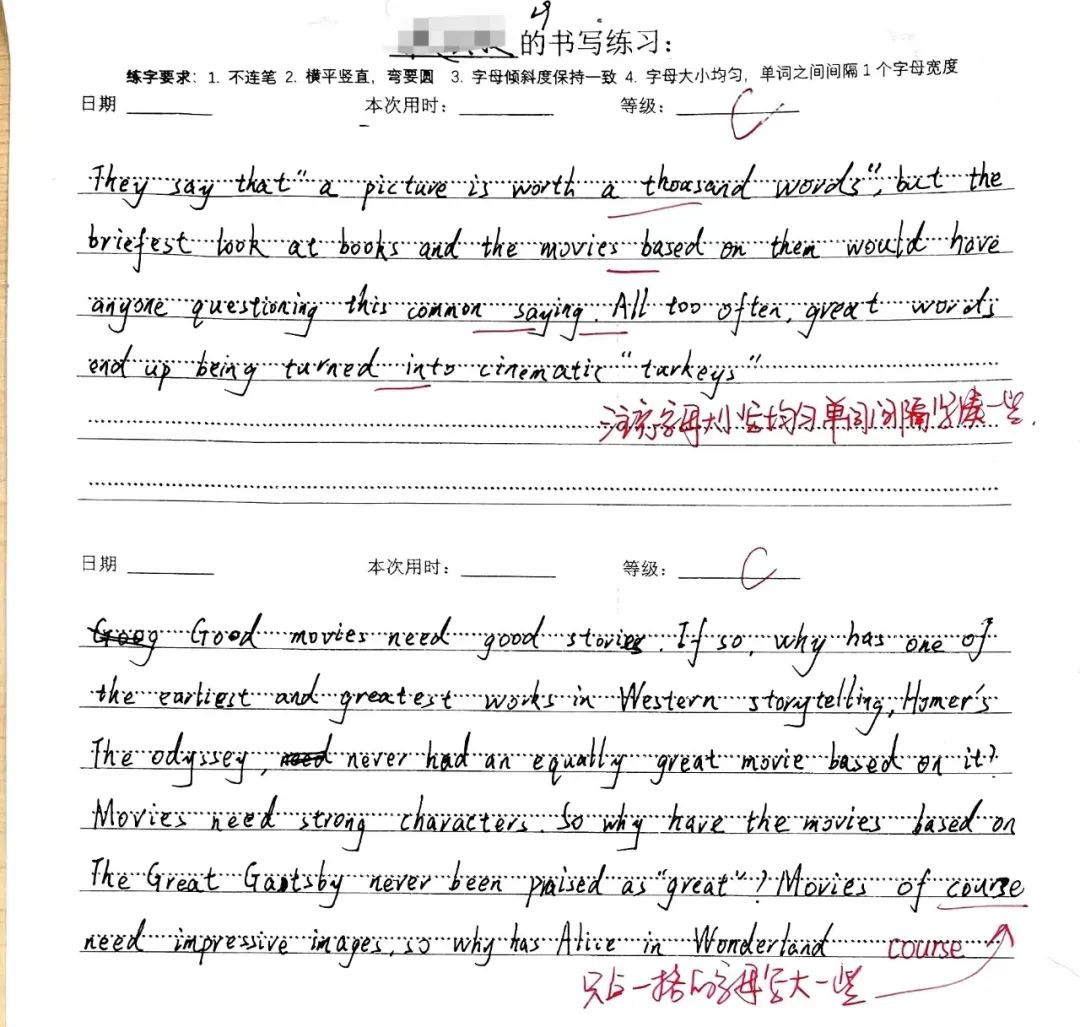 的书写练习:
练字要求: 1. 不连笔 2. 横平竖直, 弯要圆 3. 字母倾斜度保持一致 4. 字母大小均匀, 单词之间间隔 1 个字母宽度
日期 本次用时: 等级: C
They say that "a picture is worth a thousand words", but the
briefest look at books and the movies based on them would have
anyone questioning this common saying. All too often, great words
end up being turned into cinematic "turkeys"
注意字母大小写均匀单词间隔紧凑一些.
日期 本次用时: 等级: C
Good movies need good stories. If so, why has one of
the earliest and greatest works in Western storytelling, Homer's
The odyssey, never had an equally great movie based on it?
Movies need strong characters. So why have the movies based on
The Great Gatsby never been praised as "great"? Movies of course
need impressive images, so why has Alice in Wonderland course
只占一格的字母写大一些